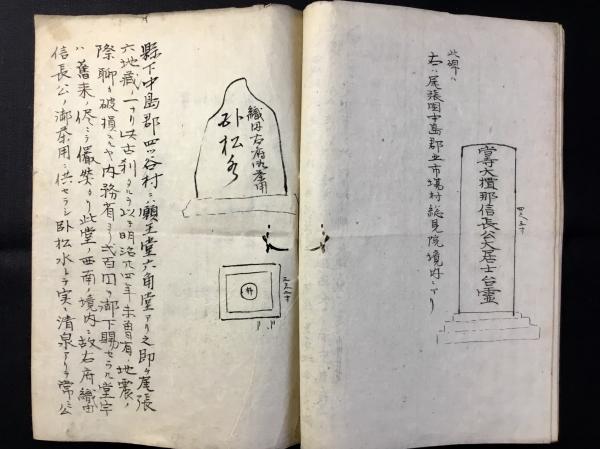 當寺大檀那信長公大居士台霊
此碑ハ
右ハ尾張国中島郡五市場村総見院境内ニアリ
織田右府御茶用
臥松水
井
縣下中島郡四ツ谷村ニ願王堂六角堂アリ之即チ尾張
六地蔵ノ一ツナリ此古刹タルヲ以テ明治廿四年未曽有ノ地震ノ
際聊カ破損
内務省ヨリ弐百円ノ御下賜セラル堂宇
ハ舊来ノ侭ニテ儼然タリ此堂ノ西南ノ境内ニ故右府織田
信長公ノ御茶用ニ供セラレシ臥松水トテ実ニ清泉アリテ常ニ公